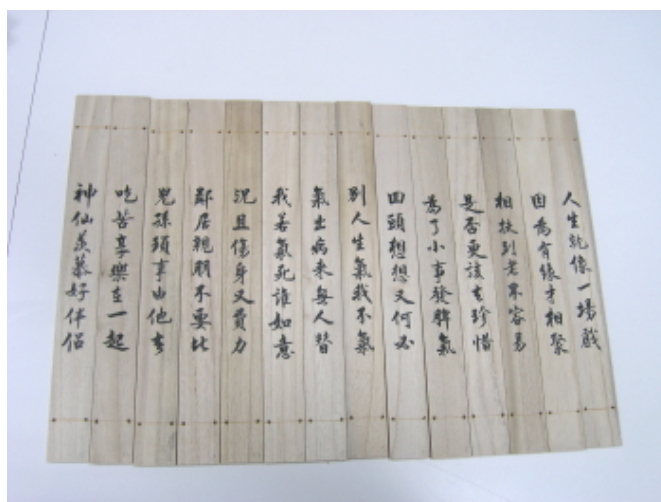 人生就像一場戲
因為有緣才相聚
相扶到老不容易
是否更該去珍惜
為了小事發脾氣
回頭想想又何必
別人生氣我不氣
氣出病來無人替
我若氣死誰如意
況且傷身又費力
鄰居親朋不要比
兒孫瑣事由他去
吃苦享樂在一起
神仙羨慕好伴侶